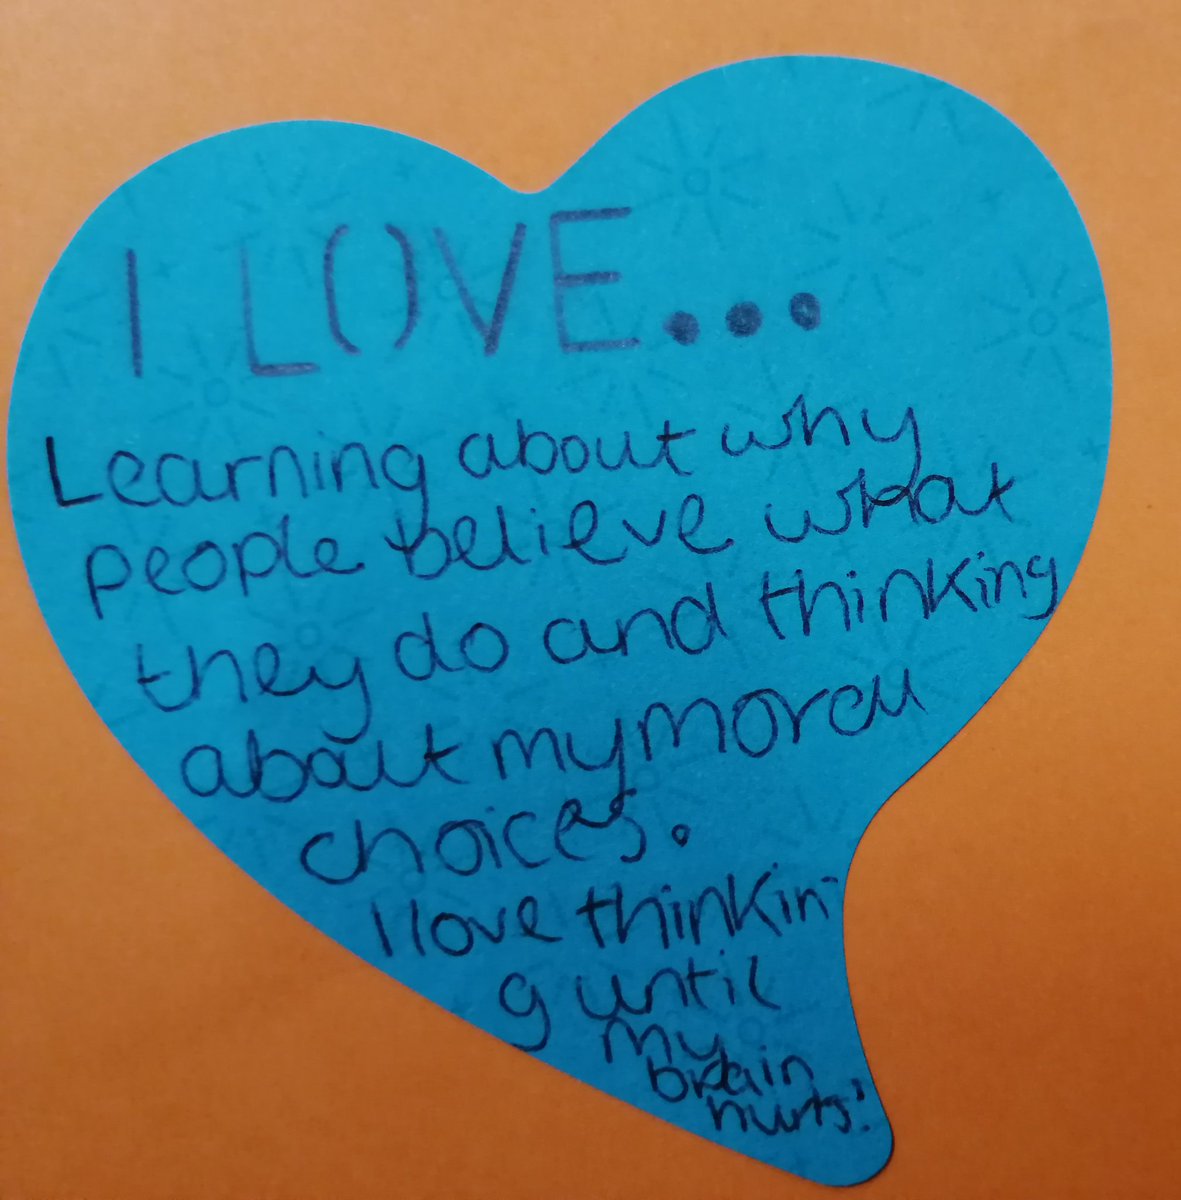 I LOVE...
Learning about why
people believe what
they do and thinking
about my moral
choices.
I love thinkin-
g until
my
brain
hurts!